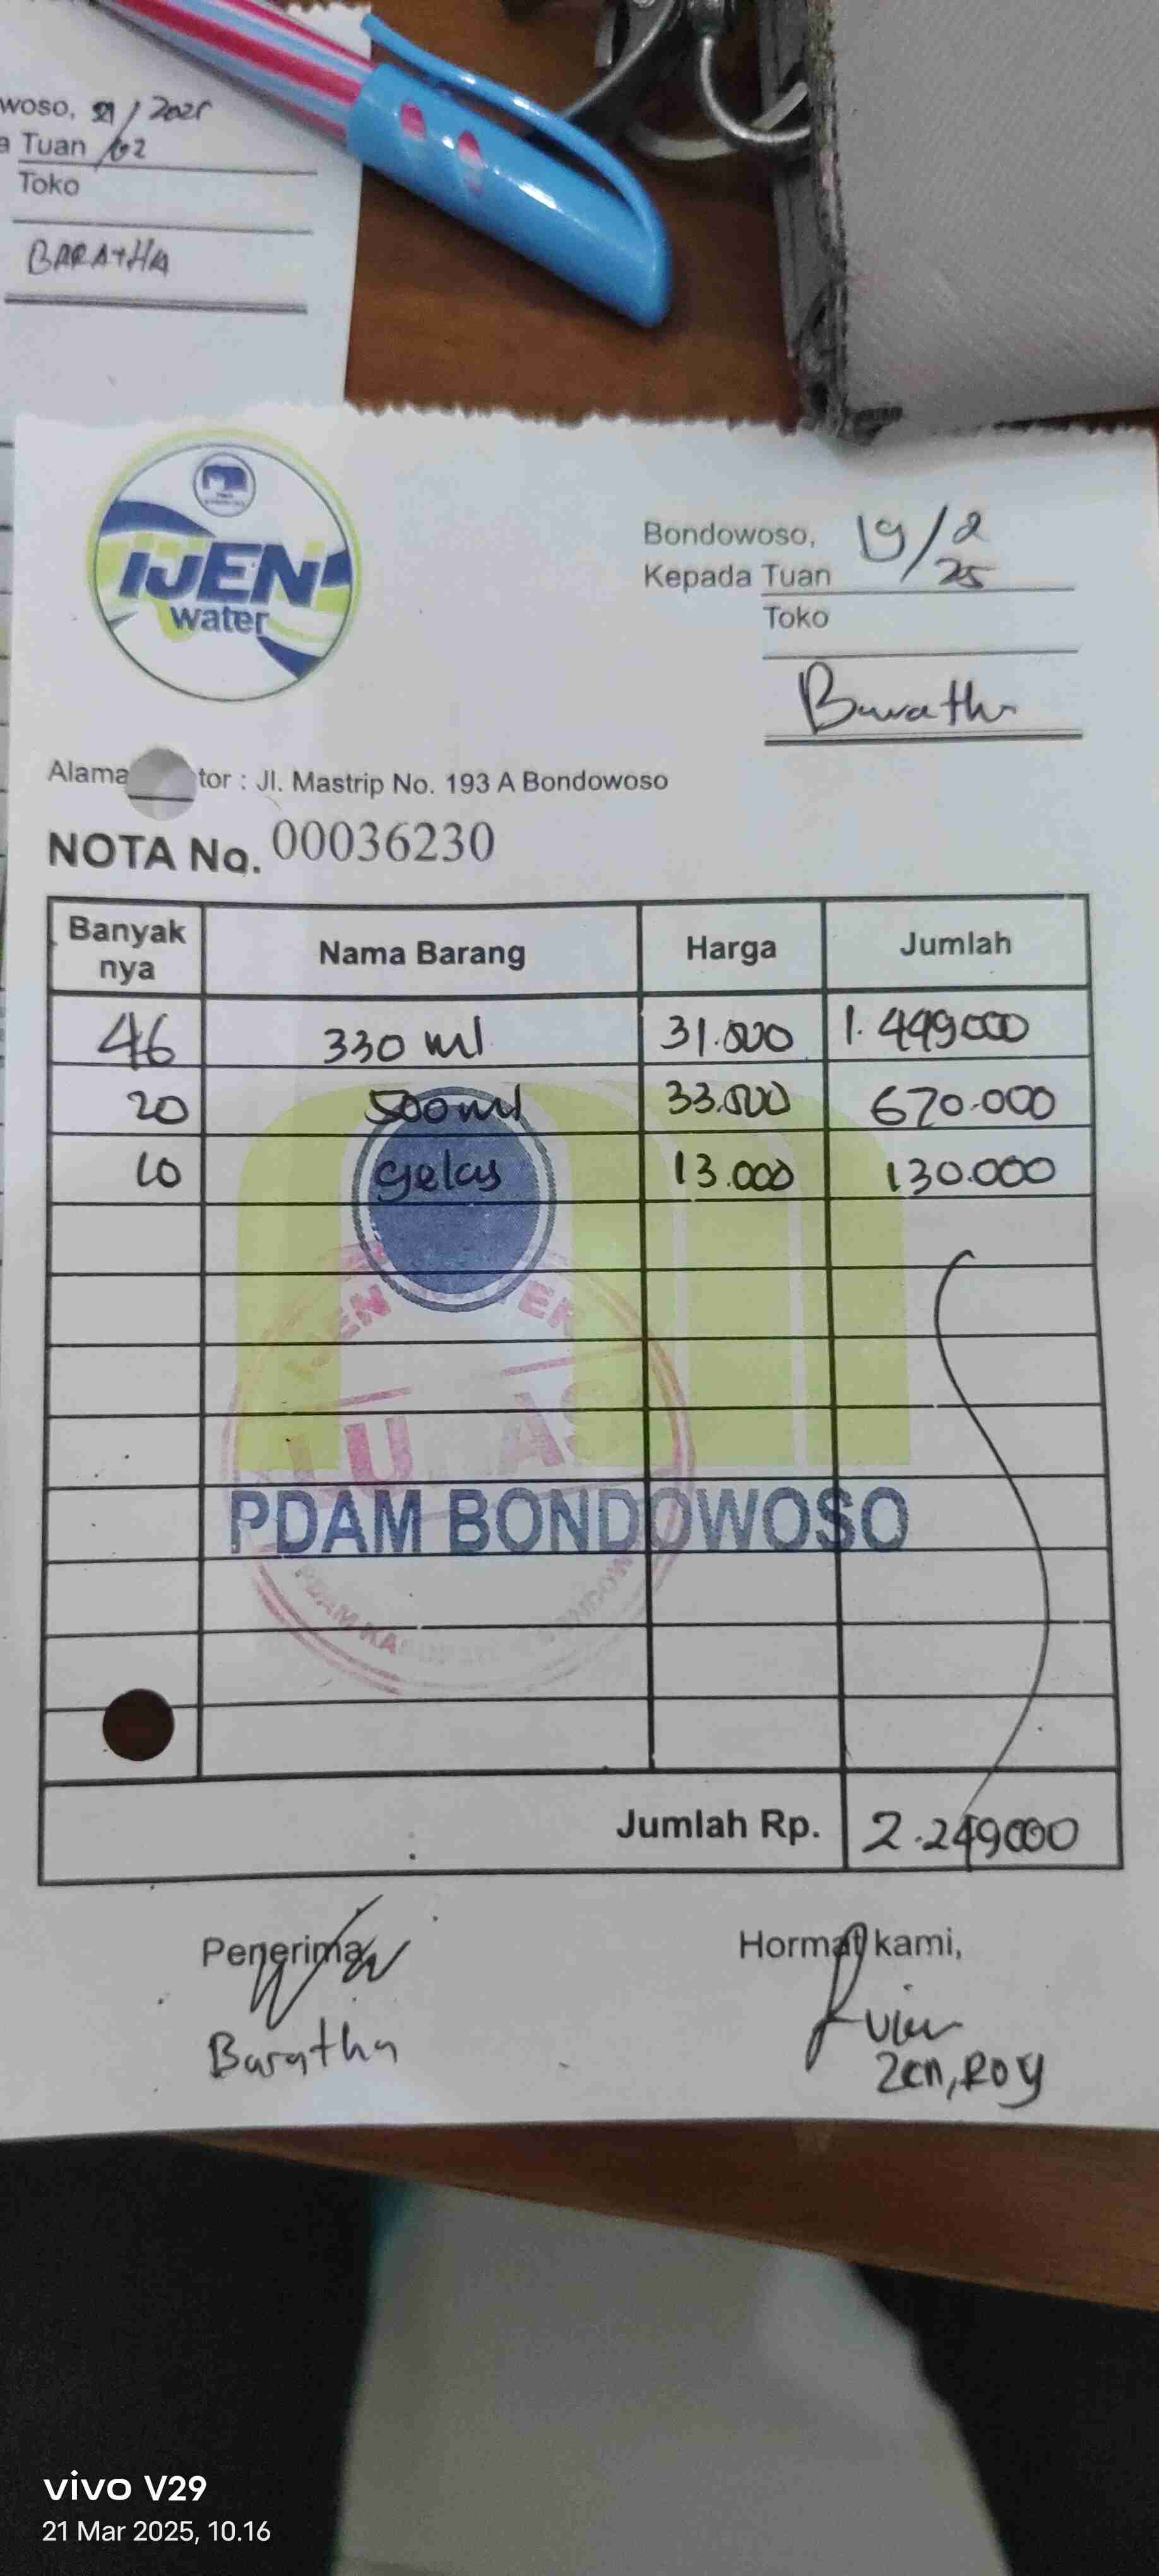 woso, 21/2025
a Tuan /02
Toko
BARATHA
IJEN
water
Bondowoso, 19/2
Kepada Tuan 25
Toko
Baratha
Alama tor : Jl. Mastrip No. 193 A Bondowoso
NOTA No. 00036230
Banyak nya Nama Barang Harga Jumlah
46 330 ml 31.500 1.449000
20 500 ml 33.500 670.000
10 gelas 13.000 130.000
LUNAS
PDAM BONDOWOSO
Jumlah Rp. 2.249000
Penerima Hormat kami,
Baratha
Zen, Roy
vivo V29
21 Mar 2025, 10.16